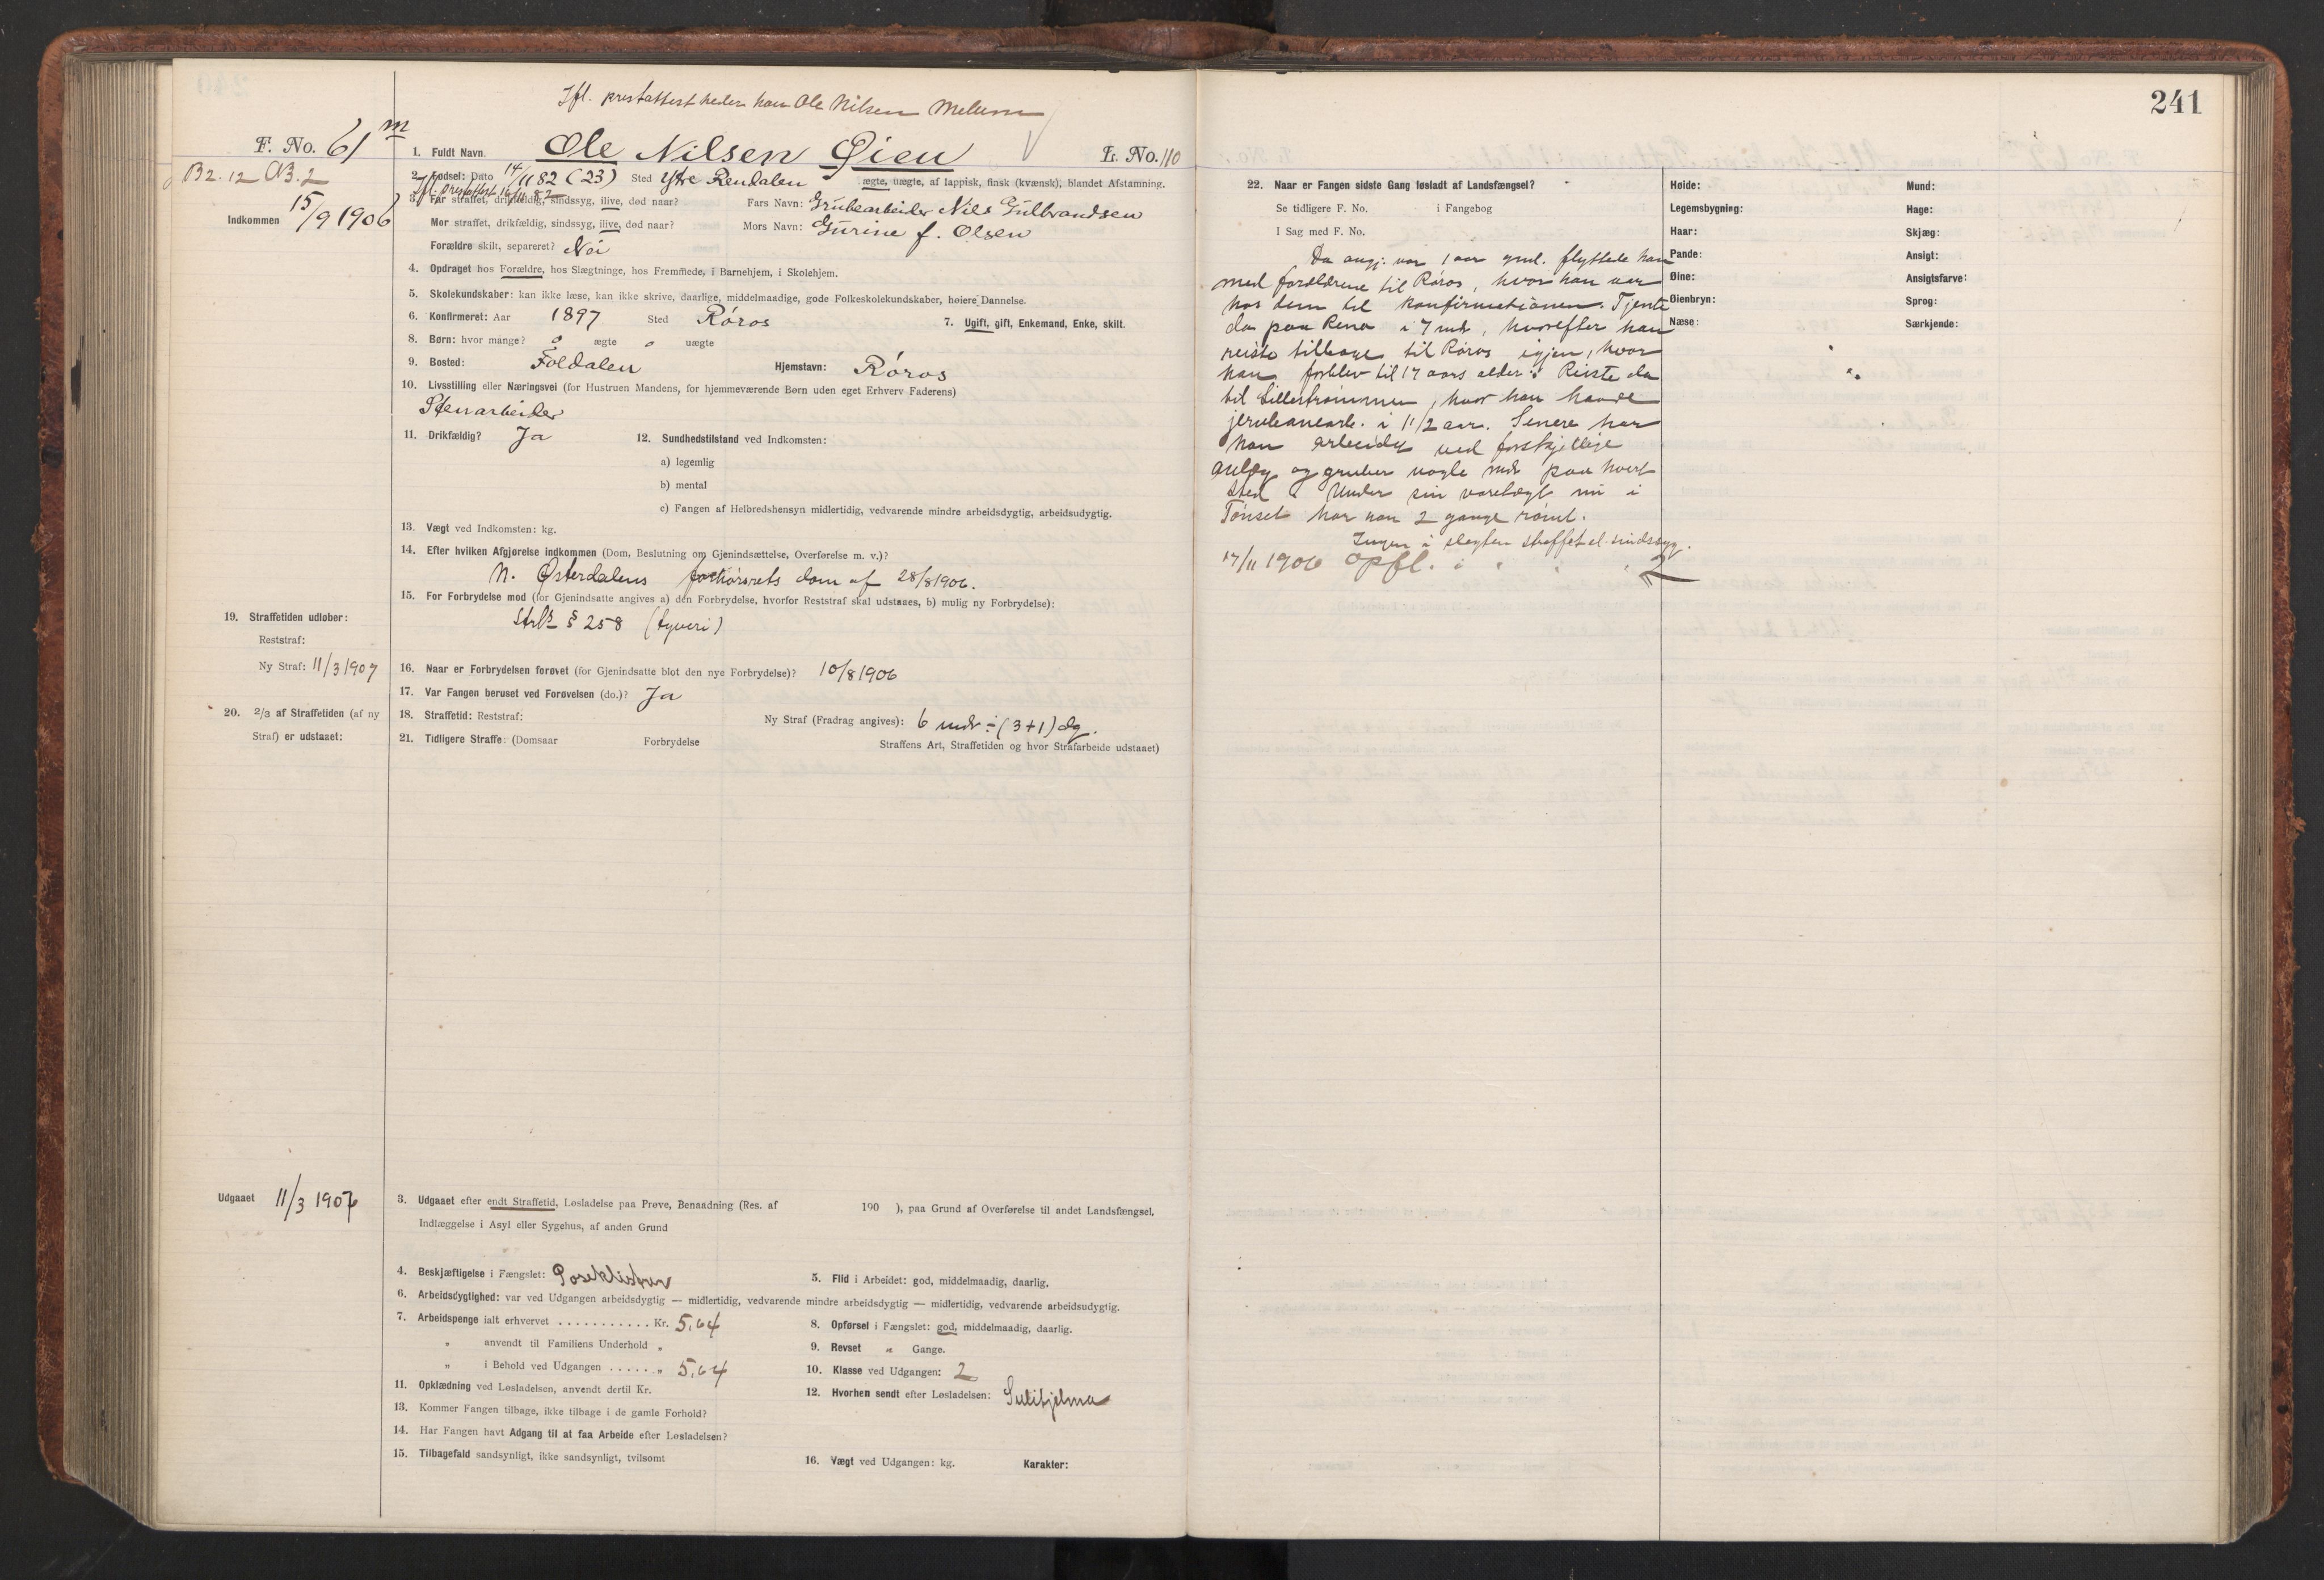 241
Ifl. prestattest heder han Ole Nilsen Melum
F. No. 61 m
B2. 12 CB. 2
Indkommen 15/9 1906
1. Fuldt Navn. Ole Nilsen Øien L. No. 110
2. Fødsel: Dato 14/11 82 (23) Sted Ytre Rendalen ægte, uægte, af lappisk, finsk (kvænsk), blandet Afstamning.
Ifl. prestattest 16/11 82
3. Far straffet, drikfældig, sindssyg, ilive, død naar? Fars Navn: Grubearbeider Nils Gulbrandsen
Mor straffet, drikfældig, sindssyg, ilive, død naar? Mors Navn: Gurine f. Olsen
Forældre skilt, separeret? Nei
4. Opdraget hos Forældre, hos Slægtninge, hos Fremmede, i Barnehjem, i Skolehjem.
5. Skolekundskaber: kan ikke læse, kan ikke skrive, daarlige, middelmaadige, gode Folkeskolekundskaber, høiere Dannelse.
6. Konfirmeret: Aar 1897 Sted Røros 7. Ugift, gift, Enkemand, Enke, skilt.
8. Børn: hvor mange? 0 ægte 0 uægte
9. Bosted: Foldalen Hjemstavn: Røros
10. Livsstilling eller Næringsvei (for Hustruen Mandens, for hjemmeværende Børn uden eget Erhverv Faderens)
Stenarbeider
11. Drikfældig? Ja 12. Sundhedstilstand ved Indkomsten:
a) legemlig
b) mental
c) Fangen af Helbredshensyn midlertidig, vedvarende mindre arbeidsdygtig, arbeidsudygtig.
13. Vægt ved Indkomsten: kg.
14. Efter hvilken Afgjørelse indkommen (Dom, Beslutning om Gjenindsættelse, Overførelse m. v.)?
N. Østerdalens forhørsrets dom af 28/8 1906.
15. For Forbrydelse mod (for Gjenindsatte angives a) den Forbrydelse, hvorfor Reststraf skal udstaaes, b) mulig ny Forbrydelse):
Strl § 258 (tyveri)
19. Straffetiden udløber:
Reststraf:
Ny Straf: 11/3 1907
16. Naar er Forbrydelsen forøvet (for Gjenindsatte blot den nye Forbrydelse)? 10/8 1906
17. Var Fangen beruset ved Forøvelsen (do.)? Ja
20. 2/3 af Straffetiden (af ny Straf) er udstaaet:
18. Straffetid: Reststraf: Ny Straf (Fradrag angives): 6 mdr ÷ (3+1) dg.
21. Tidligere Straffe: (Domsaar Forbrydelse Straffens Art, Straffetiden og hvor Strafarbeide udstaaet)
Udgaaet 11/3 1907
3. Udgaaet efter endt Straffetid, Løsladelse paa Prøve, Benaadning (Res. af 190 ), paa Grund af Overførelse til andet Landsfængsel,
Indlæggelse i Asyl eller Sygehus, af anden Grund
4. Beskjæftigelse i Fængslet: Poseklistrer 5. Flid i Arbeidet: god, middelmaadig, daarlig.
6. Arbeidsdygtighed: var ved Udgangen arbeidsdygtig — midlertidig, vedvarende mindre arbeidsdygtig — midlertidig, vedvarende arbeidsudygtig.
7. Arbeidspenge ialt erhvervet . . . . . . . . . . . Kr. 5,64 8. Opførsel i Fængslet: god, middelmaadig, daarlig.
„ anvendt til Familiens Underhold „ 9. Revset „ Gange.
„ i Behold ved Udgangen . . . . . „ 5,64 10. Klasse ved Udgangen: 2
11. Opklædning ved Løsladelsen, anvendt dertil Kr. 12. Hvorhen sendt efter Løsladelsen: Sulitjelma
13. Kommer Fangen tilbage, ikke tilbage i de gamle Forhold?
14. Har Fangen havt Adgang til at faa Arbeide efter Løsladelsen?
15. Tilbagefald sandsynligt, ikke sandsynligt, tvilsomt 16. Vægt ved Udgangen: kg. Karakter:
22. Naar er Fangen sidste Gang løsladt af Landsfængsel?
Se tidligere F. No. i Fangebog
I Sag med F. No.
Da angj. var 1 aar gml. flyttede han
med forældrene til Røros, hvor han var
hos dem til konfirmationen. Tjente
da paa Rena i 7 mdr, hvorefter han
reiste tilbage til Røros igjen, hvor
han forblev til 17 aars alder. Reiste da
til Lillestrømmen, hvor han havde
jernbanearb. i 1 1/2 aar. Senere har
han arbeidet ved forskjellige
anlæg og gruber nogle mdr paa hvert
sted. Under sin varetægt nu i
Tønset har han 2 gange rømt.
Ingen i slegten straffet el. sindssyg.
17/11 1906 opfl. i 2
Høide:
Legemsbygning:
Haar:
Pande:
Øine:
Øienbryn:
Næse:
Mund:
Hage:
Skjæg:
Ansigt:
Ansigtsfarve:
Sprog:
Særkjende: